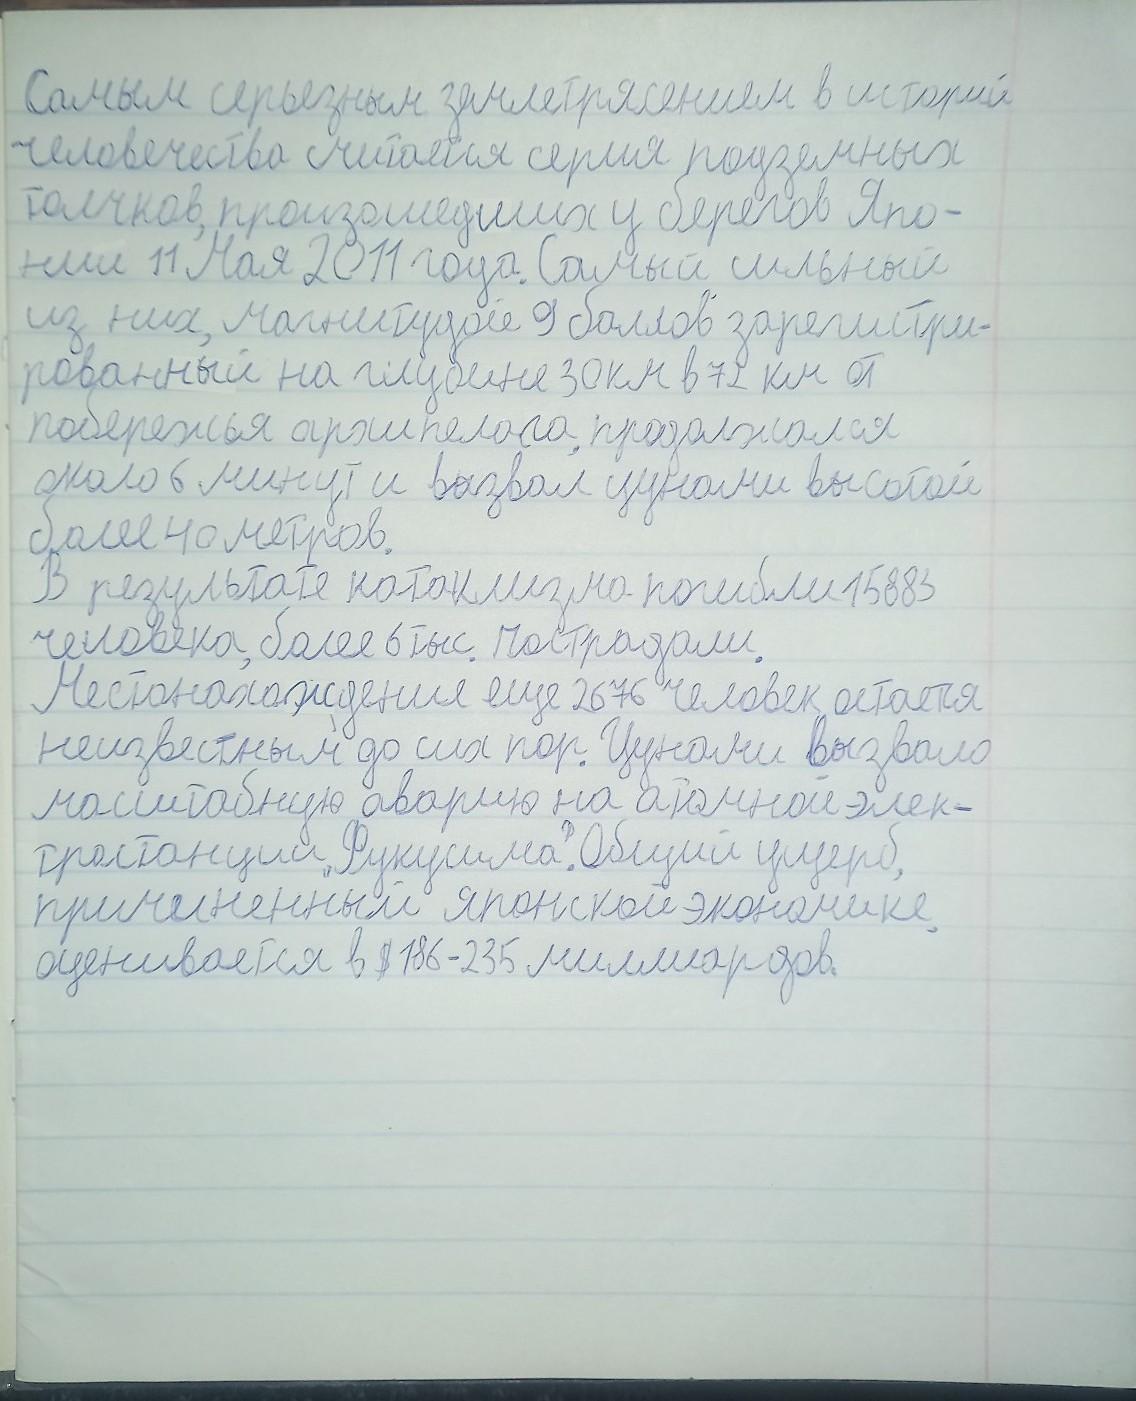 Самым серьезным землетрясением в историй
человечества считается серия подземных
толчков, произошедших у берегов Япо-
нии 11 Мая 2011 года. Самый сильный
из них, магнитудой 9 баллов зарегистри-
рованный на глубине 30 км в 72 км от
побережья архипелага, продолжался
около 6 минут и вызвал цунами высотой
более 40 метров.
В результате катаклизма погибли 15883
человека, более 6 тыс. пострадали.
Местонахождения еще 2676 человек остается
неизвестным до сих пор. Цунами вызвало
масштабную аварию на атомной элек-
тростанции „Фукусима". Общий ущерб,
причиненный японской экономике,
оценивается в $ 186-235 миллиардов.